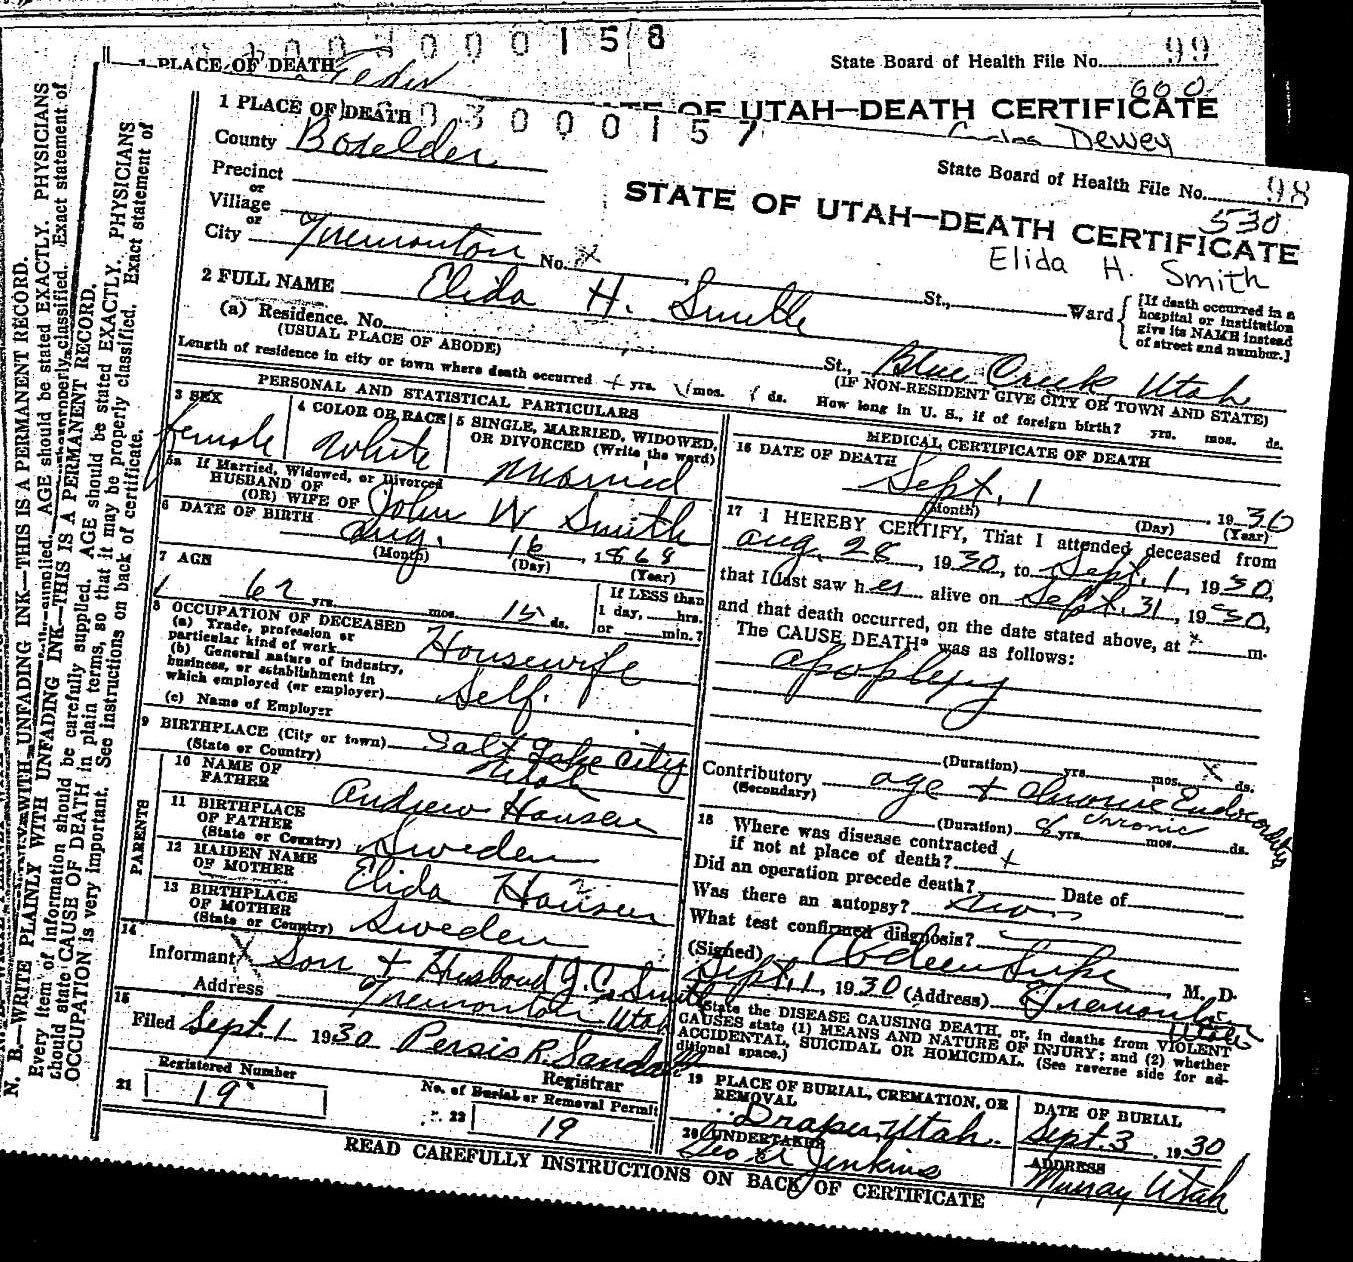 1 PLACE OF DEATH
0 0 0 1 5 8
State Board of Health File No. 99
OF UTAH—DEATH CERTIFICATE
660
Dewey
1 PLACE OF DEATH
0 3 0 0 0 1 5 7
County Boxelder
State Board of Health File No. 98
Precinct
or
Village
or
City Tremonton No. x St., Ward
STATE OF UTAH—DEATH CERTIFICATE
530
Elida H. Smith
[If death occurred in a hospital or institution give its NAME instead of street and number.]
2 FULL NAME Elida H. Smith
(a) Residence. No. St., Blue Creek, Utah
(USUAL PLACE OF ABODE) (IF NON-RESIDENT GIVE CITY OR TOWN AND STATE)
Length of residence in city or town where death occurred yrs. mos. ds. How long in U. S., if of foreign birth? yrs. mos. ds.
PERSONAL AND STATISTICAL PARTICULARS
3 SEX
female
4 COLOR OR RACE
White
5 SINGLE, MARRIED, WIDOWED, OR DIVORCED (Write the word)
Married
5a If Married, Widowed, or Divorced
HUSBAND OF
(OR) WIFE OF John W Smith
6 DATE OF BIRTH Aug. 16, 1868
(Month) (Day) (Year)
7 AGE
62 yrs. mos. 15 ds.
If LESS than
1 day, hrs.
or min.?
8 OCCUPATION OF DECEASED
(a) Trade, profession or
particular kind of work Housewife
(b) General nature of industry,
business, or establishment in
which employed (or employer) Self.
(c) Name of Employer
9 BIRTHPLACE (City or town) Salt Lake City
(State or Country) Utah
PARENTS
10 NAME OF
FATHER Andrew Hansen
11 BIRTHPLACE
OF FATHER
(State or Country) Sweden
12 MAIDEN NAME
OF MOTHER Elida Hansen
13 BIRTHPLACE
OF MOTHER
(State or Country) Sweden
14
Informant Son + Husband J. C. Smith
Address Tremonton Utah
15
Filed Sept. 1 1930 Persis R. Sandall
Registrar
Registered Number
21 19
No. of Burial or Removal Permit
22 19
MEDICAL CERTIFICATE OF DEATH
16 DATE OF DEATH
Sept. 1, 1930
(Month) (Day) (Year)
17 I HEREBY CERTIFY, That I attended deceased from
Aug. 28, 1930, to Sept. 1, 1930,
that I last saw her alive on Sept. 31, 1930,
and that death occurred, on the date stated above, at x m.
The CAUSE DEATH* was as follows:
Apoplexy
(Duration) yrs. mos. x ds.
Contributory age + chronic Endocarditis
(Secondary) chronic
(Duration) yrs. mos. ds.
18 Where was disease contracted
if not at place of death?
Did an operation precede death? Date of
Was there an autopsy?
What test confirmed diagnosis?
(Signed) M. D.
Sept. 1, 1930 (Address) Tremonton Utah
*State the DISEASE CAUSING DEATH, or, in deaths from VIOLENT
CAUSES state (1) MEANS AND NATURE OF INJURY; and (2) whether
ACCIDENTAL, SUICIDAL OR HOMICIDAL. (See reverse side for ad-
ditional space.)
19 PLACE OF BURIAL, CREMATION, OR
REMOVAL
Draper, Utah.
DATE OF BURIAL
Sept. 3, 1930
20 UNDERTAKER
Geo Jenkins
ADDRESS
Murray Utah
READ CAREFULLY INSTRUCTIONS ON BACK OF CERTIFICATE
N. B.—WRITE PLAINLY WITH UNFADING INK—THIS IS A PERMANENT RECORD.
Every item of information should be carefully supplied. AGE should be stated EXACTLY. PHYSICIANS
should state CAUSE OF DEATH in plain terms, so that it may be properly classified. Exact statement of
OCCUPATION is very important. See instructions on back of certificate.